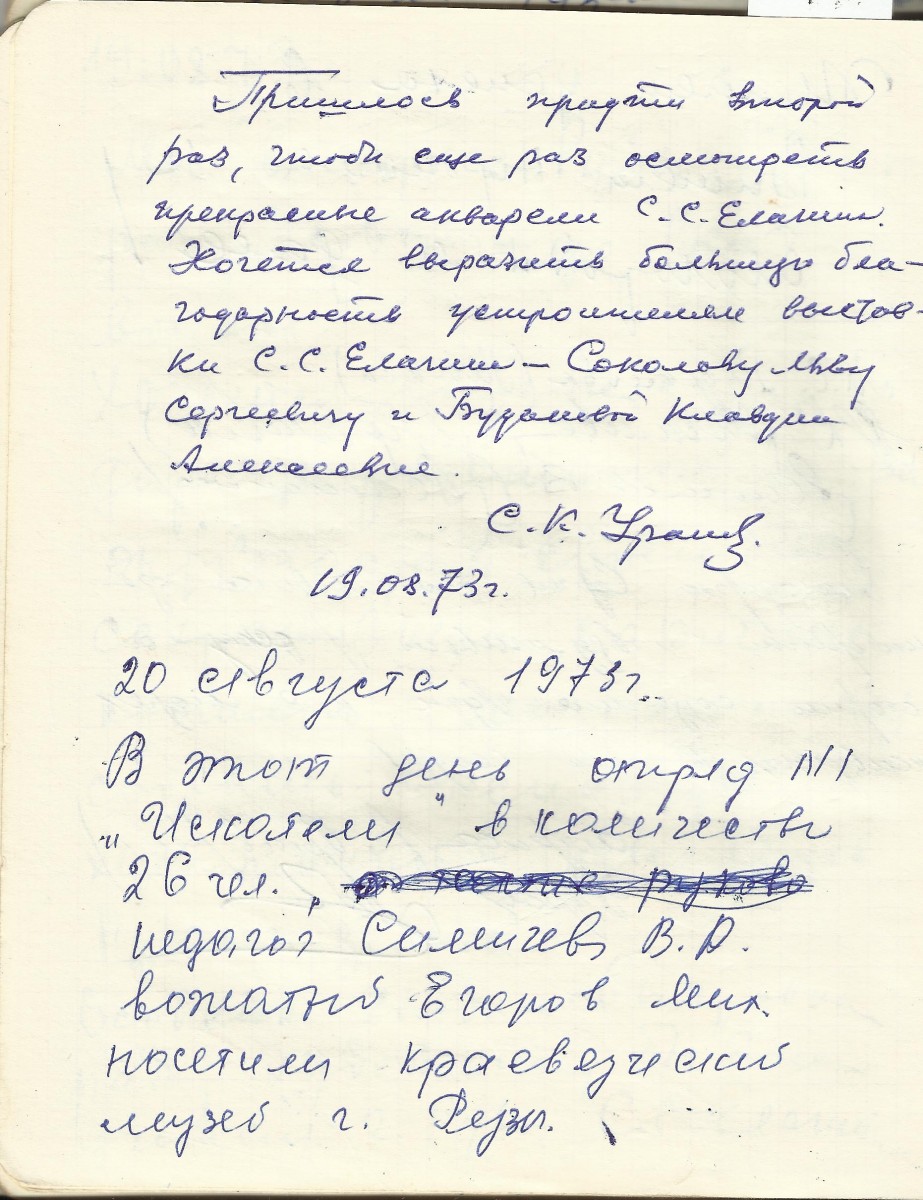 Пришлось придти второй
раз, чтобы еще раз осмотреть
прекрасные акварели С.С. Елагин.
Хочется выразить большую бла-
годарность устроителям выстав-
ки С.С. Елагин – Соколову Льву
Сергеевичу и Клавдии
Алексеевне.
С.К.
19.08.73г.
20 августа 1973г.
В этот день отряд №1
"Искатели" в количестве
26 чел.,
педагог В.Д.
вожатый Егоров Мих.
посетили краеведческий
музей г. Рузы.